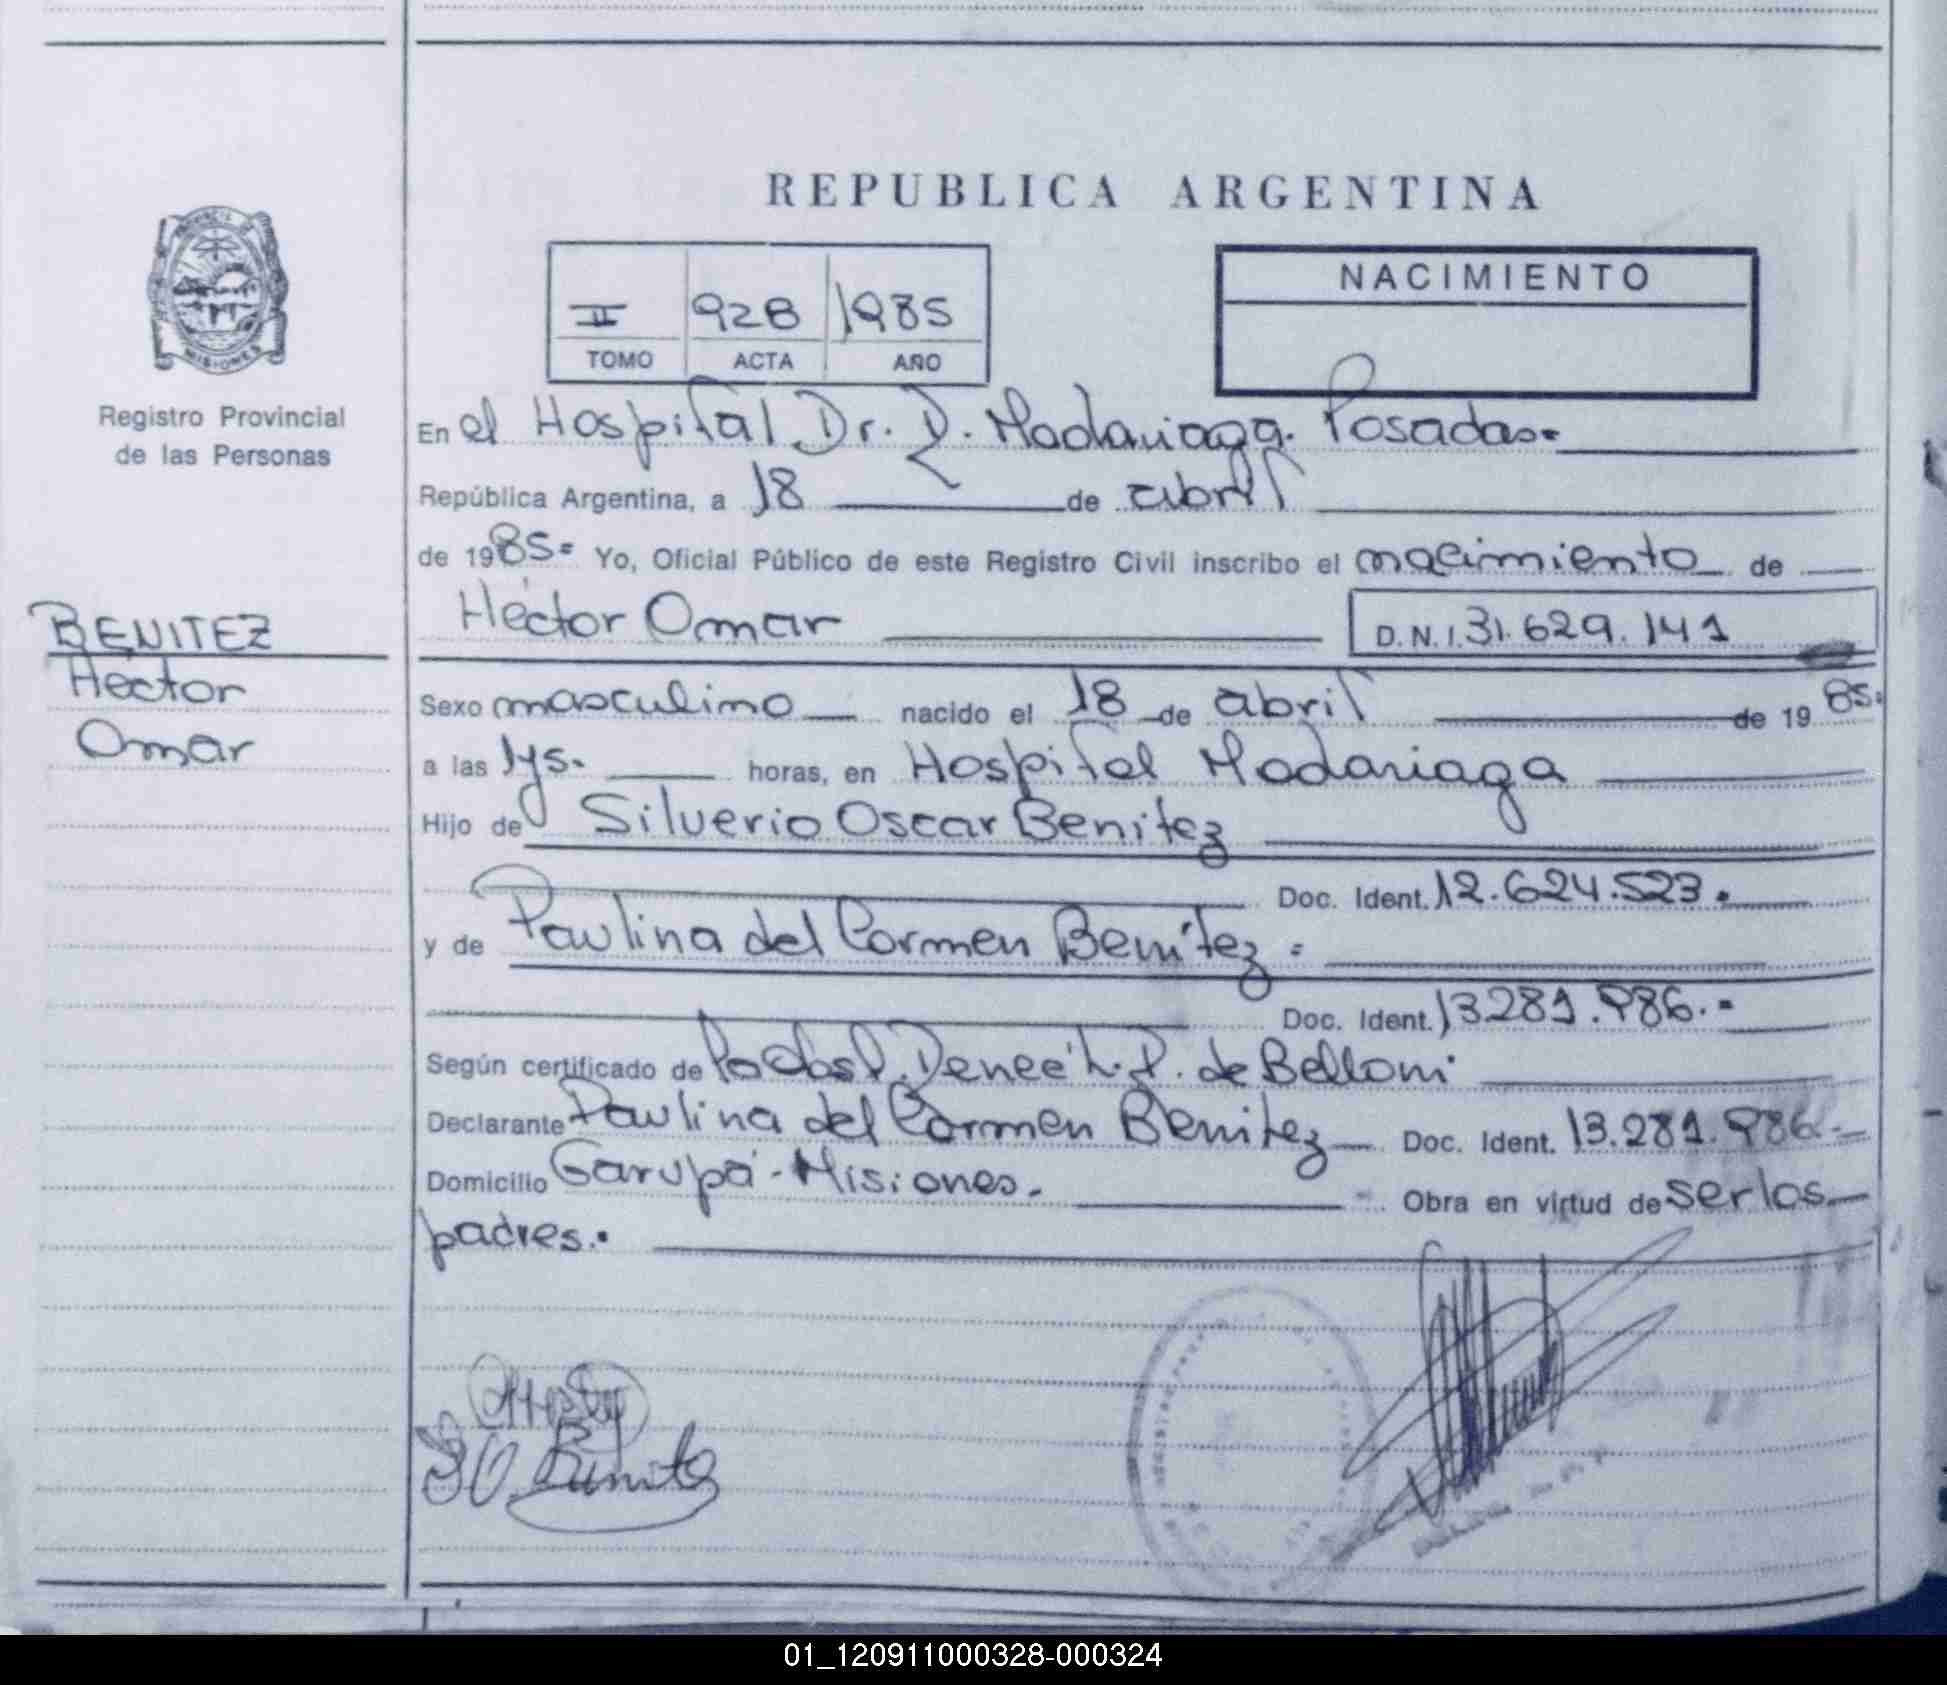 REPUBLICA ARGENTINA
II 928 1985
TOMO ACTA AÑO
NACIMIENTO
MISIONES
Registro Provincial
de las Personas
BENITEZ
Hector
Omar
En el Hospital Dr. R. Madariaga. Posadas=
República Argentina, a 18 de abril
de 1985= Yo, Oficial Público de este Registro Civil inscribo el nacimiento de
Héctor Omar D.N.I. 31.629.141
Sexo masculino nacido el 18 de abril de 1985=
a las horas, en Hospital Madariaga
Hijo de Silverio Oscar Benitez
Doc. Ident. 12.624.523.
y de Paulina del Carmen Benítez =
Doc. Ident. 13.281.986.=
Según certificado de de Belloni
Declarante Paulina del Carmen Benitez Doc. Ident. 13.281.986.-
Domicilio Garupá - Misiones. Obra en virtud de ser los
padres.
S O Benitez
01_120911000328-000324